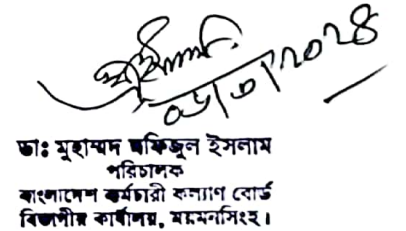 ০৬/৩/২০২৪
ডাঃ মুহাম্মদ মফিজুল ইসলাম
পরিচালক
বাংলাদেশ কর্মচারী কল্যাণ বোর্ড
বিভাগীয় কার্যালয়, ময়মনসিংহ।